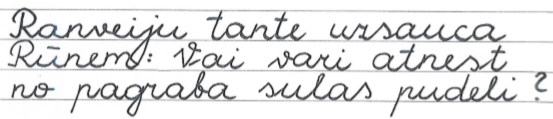 Ranveiju tante uzsauca
Rūnem: Vai vari atnest
no pagraba sulas pudeli?